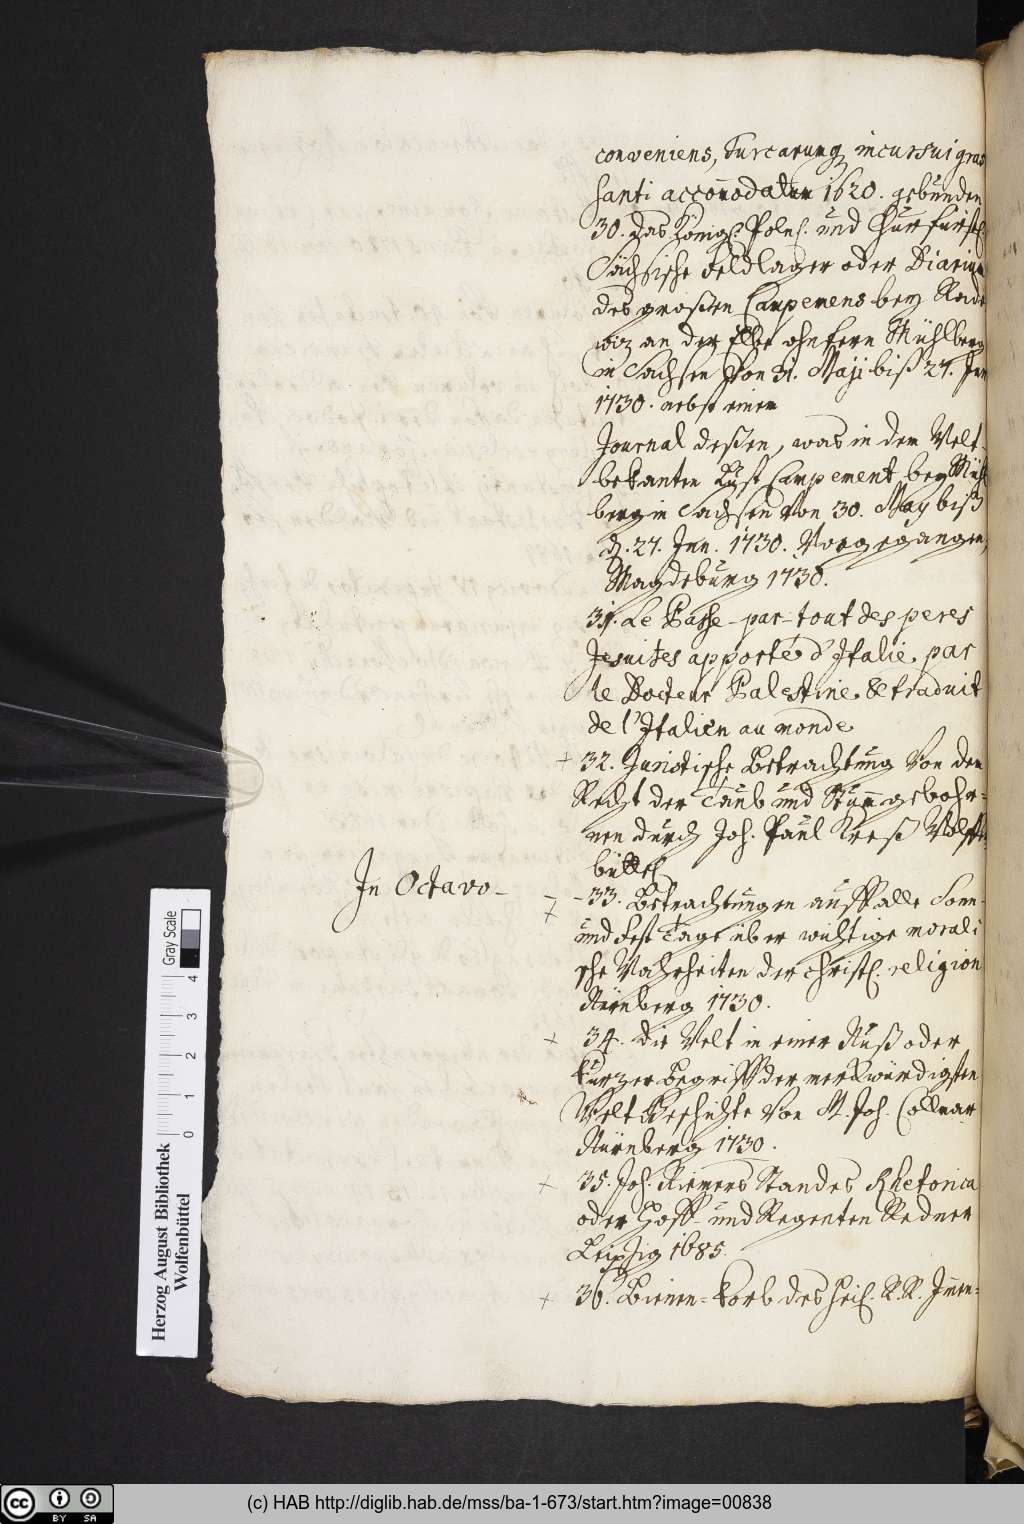 conveniens, Turcarung incursui gras
santi accom̄odatum 1620. gebunden
30. Das Königl. Poln. und Churfürstl.
Sächsische Feldlager oder Diarium
des großen Campemens bey Rade
wiz an der Elbe ohnfern Mühlberg
in Sachsen von 31. Maji biß 27. Jun
1730. nebst einem
Journal deßen, was in dem Welt-
bekanten Lust Campement bey Mühl
berg in Sachsen von 30. May biß
d. 27. Jun. 1730. Vorgegangen,
Magdeburg 1730.
31. Le Passe-par-tout des peres
Jesuites apporté d'Italie. par
le Docteur Palestine. & traduit
de l'Italien au monde
+ 32. Juristische Betrachtung Von dem
Recht der Taub und Stum̄gebohr=
nen durch Joh. Paul Kreß Wolffen
büttel
In Octavo -
- 33. Betrachtungen auff alle Sonn-
und Fest Tage über wichtige morali
sche Wahrheiten der christl. religion
Nürnberg 1730.
+ 34. Die Welt in einer Nuß oder
kurzer Begriff der merckwürdigsten
Welt Geschichte Von M. Joh. Collmar
Nürnberg 1730.
+ 35. Joh. Riemers Standes Rhetorica
oder Hoff- und Regenten Redner
Leipzig 1685.
+ 36. Bienen=Korb des Heil. R. R. Im̄en=
Herzog August Bibliothek
Wolfenbüttel
0 1 2 3 4
Gray Scale
BY SA
(c) HAB http://diglib.hab.de/mss/ba-1-673/start.htm?image=00838